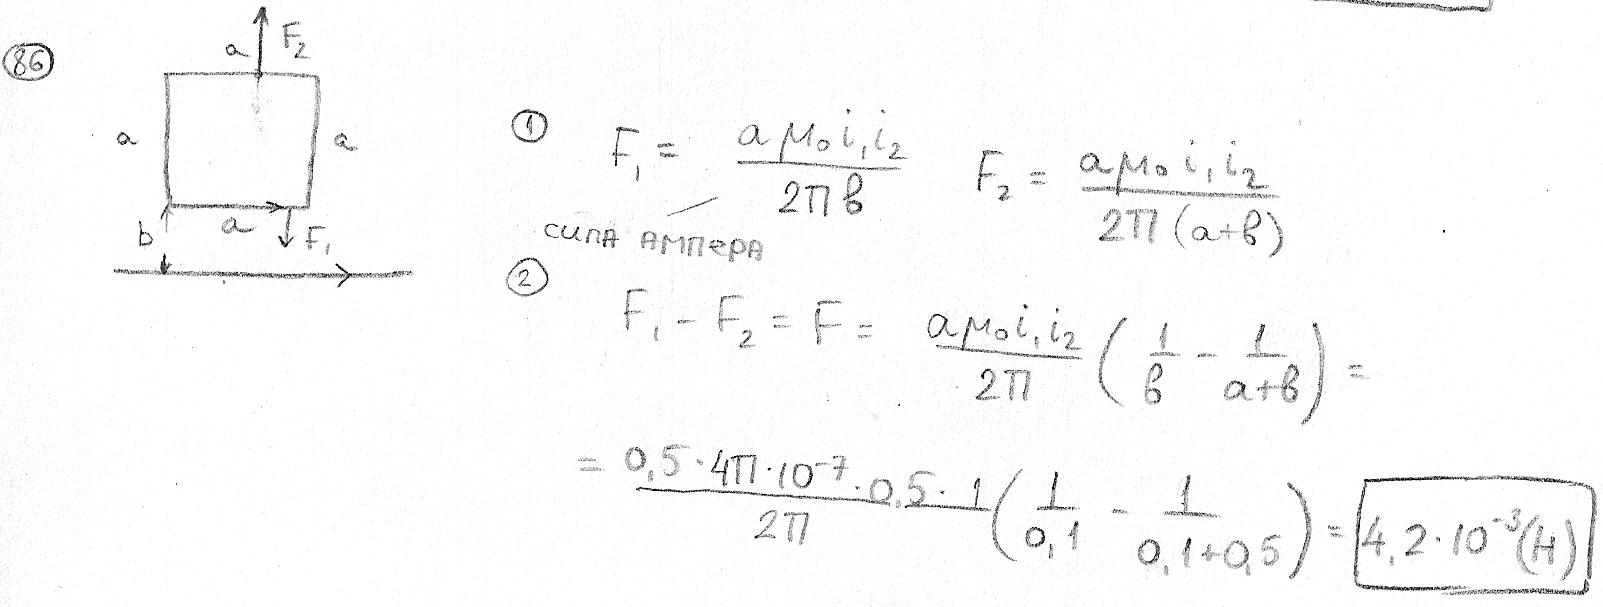 86
a F₂
a a
b a F₁
① F₁ = aμ₀i₁i₂ / 2πb F₂ = aμ₀i₁i₂ / 2π(a+b)
сила Ампера
②
F₁ - F₂ = F = aμ₀i₁i₂ / 2π (1/b - 1/a+b) =
= 0,5·4π·10⁻⁷·0,5·1 / 2π (1/0,1 - 1/0,1+0,5) = 4,2·10⁻³(Н)